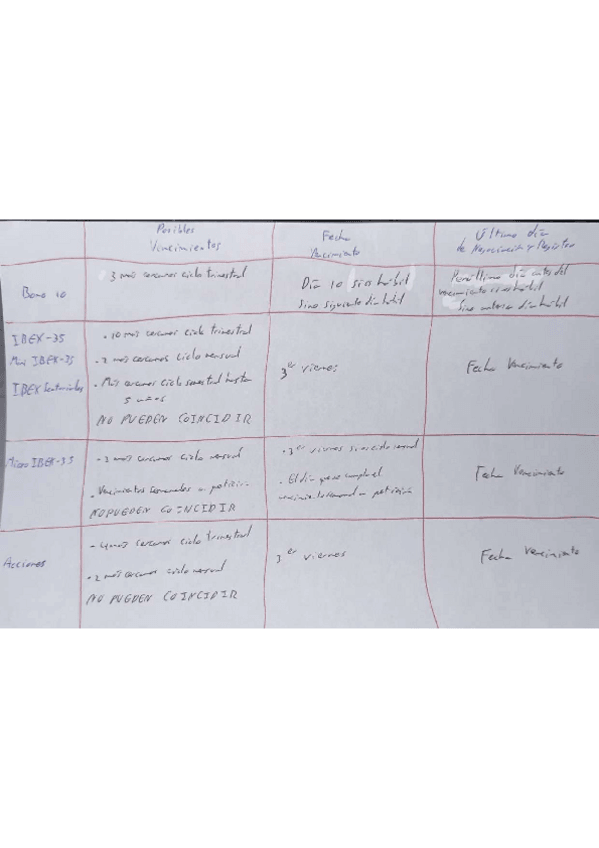 Posibles
Vencimientos
Fecha
Vencimiento
Último día
de Negociación y Registro
Bono 10
3 más cercanos ciclo trimestral
Día 10 si es hábil
Sino siguiente día hábil
Penúltimo día antes del
vencimiento si es hábil
Sino anterior día hábil
IBEX-35
Mini IBEX-35
IBEX Sectoriales
. 10 más cercanos ciclo trimestral
. 2 más cercanos ciclo mensual
. Más cercanos ciclo semestral hasta
5 años
NO PUEDEN COINCIDIR
3er viernes
Fecha Vencimiento
Micro IBEX-35
- 2 más cercanos ciclo mensual
. Vencimientos semanales a petición
NO PUEDEN COINCIDIR
. 3er viernes si es ciclo mensual
. El día que se cumpla el
vencimiento semanal a petición
Fecha Vencimiento
Acciones
- 4 más cercanos ciclo trimestral
. 2 más cercanos ciclo mensual
NO PUEDEN COINCIDIR
3er viernes
Fecha Vencimiento